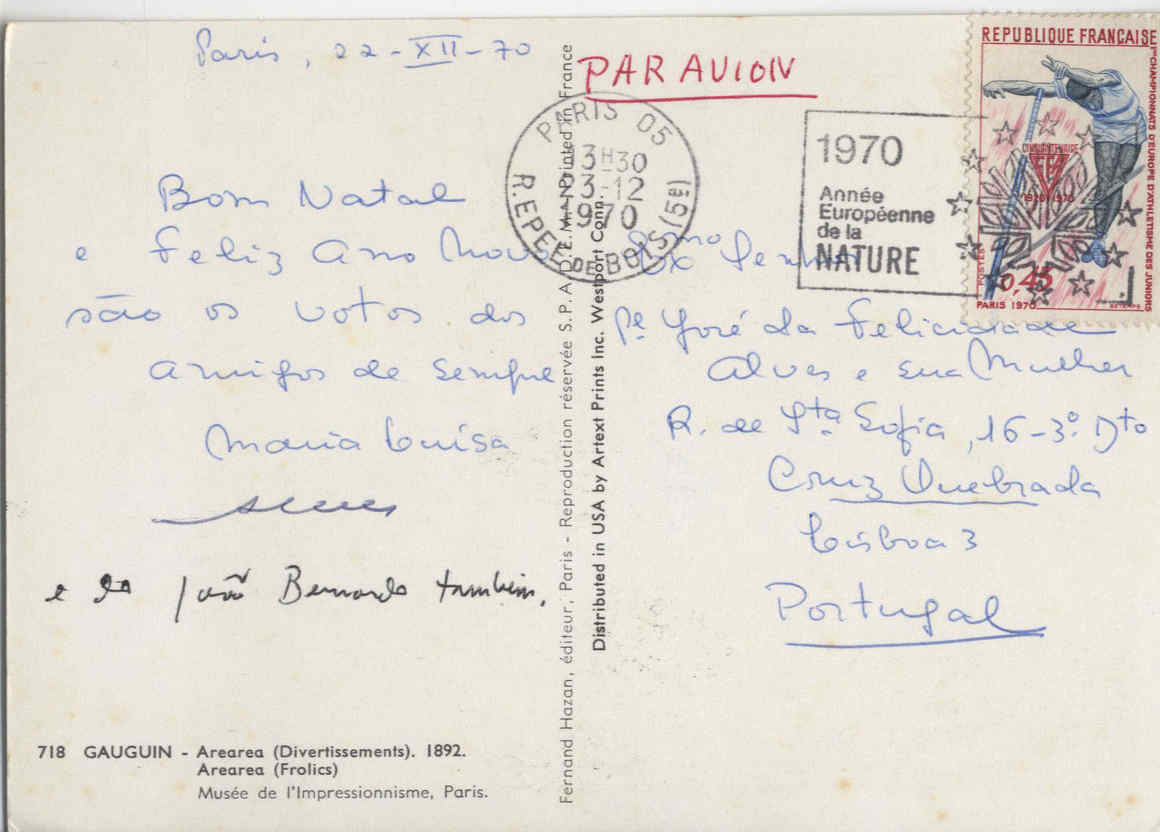 Paris, 22-XII-70
Bom Natal
e Feliz Ano Novo
são os votos dos
amigos de sempre
Maria Luísa
e do João Bernardo também.
718 GAUGUIN - Arearea (Divertissements). 1892.
Arearea (Frolics)
Musée de l'Impressionnisme, Paris.
Fernand Hazan, éditeur, Paris - Reproduction réservée S.P.A.D.E.M. - Printed in France
Distributed in USA by Artext Prints Inc. Westport Conn.
PAR AVION
PARIS 05
13H30
23-12
1970
R. EPEE DE BOIS (5e)
1970
Année
Européenne
de la
NATURE
REPUBLIQUE FRANÇAISE
1ers CHAMPIONNATS D'EUROPE D'ATHLETISME DES JUNIORS
CINQUANTENAIRE
1920-1970
POSTES
0,45
PARIS 1970
Exmo Senhor
Pe José da Felicidade
Alves e sua Mulher
R. de Sta Sofia, 16-3º. Dto
Cruz Quebrada
Lisboa 3
Portugal